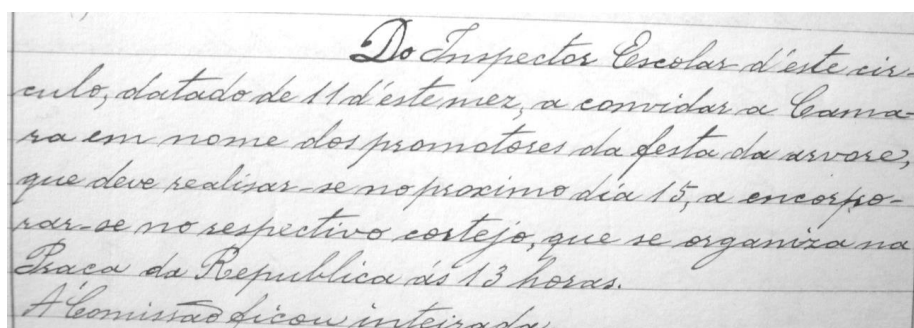 Do Inspector Escolar d'este cir-
culo, datado de 11 d'este mez, a convidar a Cama-
ra em nome dos promotores da festa da arvore,
que deve realisar-se no proximo dia 15, a encorpo-
rar-se no respectivo cortejo, que se organiza na
Praça da Republica ás 13 horas.
A Comissão ficou inteirada